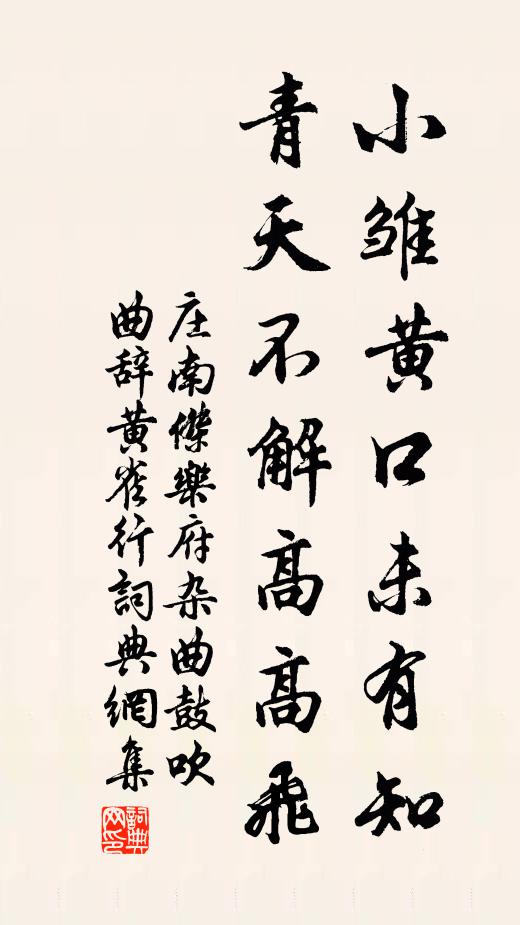 小雏黄口未有知
青天不解高高飛
庄南傑樂府杂曲鼓吹
曲辞黄雀行詞典網集
詞典网印